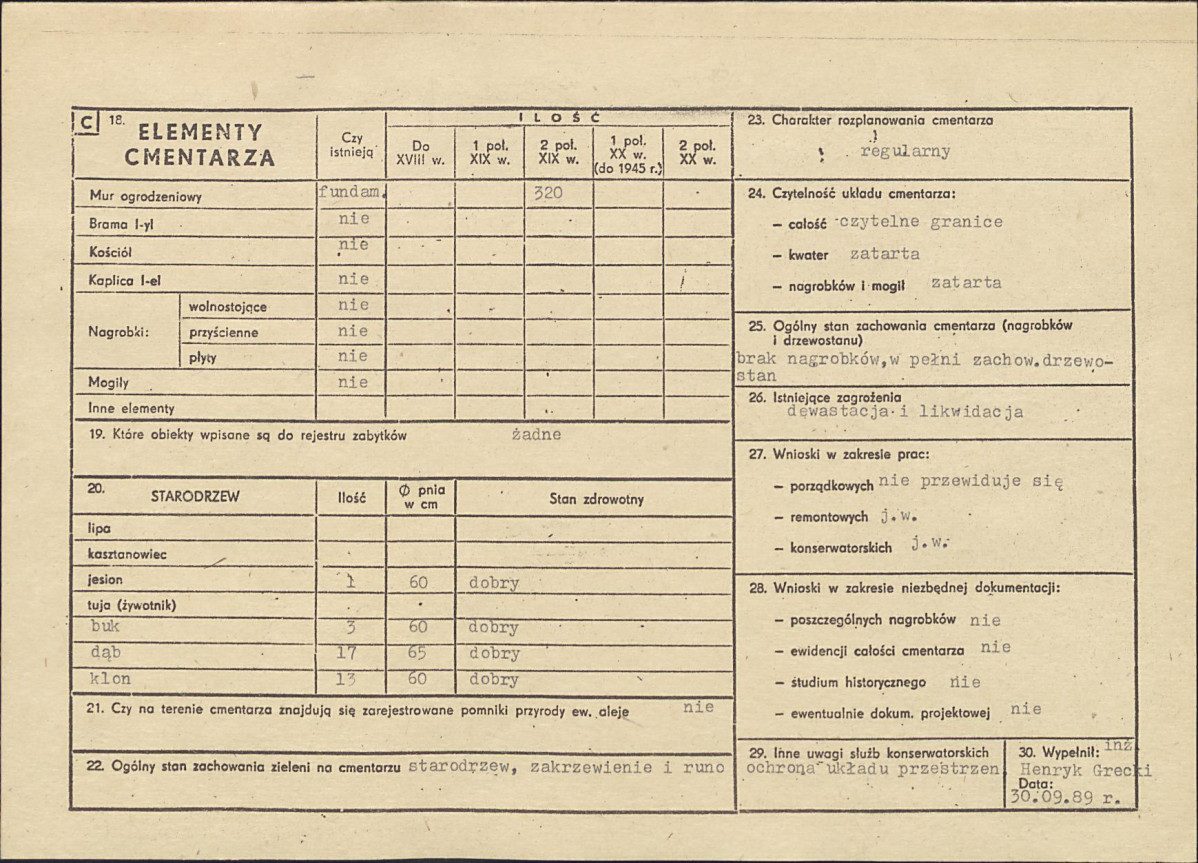 C 18. ELEMENTY CMENTARZA
Czy istnieją
ILOŚĆ
Do XVIII w.
1 poł. XIX w.
2 poł. XIX w.
1 poł. XX w. (do 1945 r.)
2 poł. XX w.
Mur ogrodzeniowy fundam. 320
Brama I-yl nie
Kościół nie
Kaplica I-el nie
Nagrobki:
wolnostojące nie
przyścienne nie
płyty nie
Mogiły nie
Inne elementy
19. Które obiekty wpisane są do rejestru zabytków żadne
20. STARODRZEW Ilość Ø pnia w cm Stan zdrowotny
lipa
kasztanowiec
jesion 1 60 dobry
tuja (żywotnik)
buk 3 60 dobry
dąb 17 65 dobry
klon 13 60 dobry
21. Czy na terenie cmentarza znajdują się zarejestrowane pomniki przyrody ew. aleje nie
22. Ogólny stan zachowania zieleni na cmentarzu starodrzew, zakrzewienie i runo
23. Charakter rozplanowania cmentarza
regularny
24. Czytelność układu cmentarza:
— całość czytelne granice
— kwater zatarta
— nagrobków i mogił zatarta
25. Ogólny stan zachowania cmentarza (nagrobków
i drzewostanu)
brak nagrobków,w pełni zachow.drzewo-
stan
26. Istniejące zagrożenia
dewastacja i likwidacja
27. Wnioski w zakresie prac:
— porządkowych nie przewiduje się
— remontowych j.w.
— konserwatorskich j.w.
28. Wnioski w zakresie niezbędnej dokumentacji:
— poszczególnych nagrobków nie
— ewidencji całości cmentarza nie
— studium historycznego nie
— ewentualnie dokum. projektowej nie
29. Inne uwagi służb konserwatorskich
ochrona układu przestrzen
30. Wypełnił: inż
Henryk Grecki
Data:
30.09.89 r.